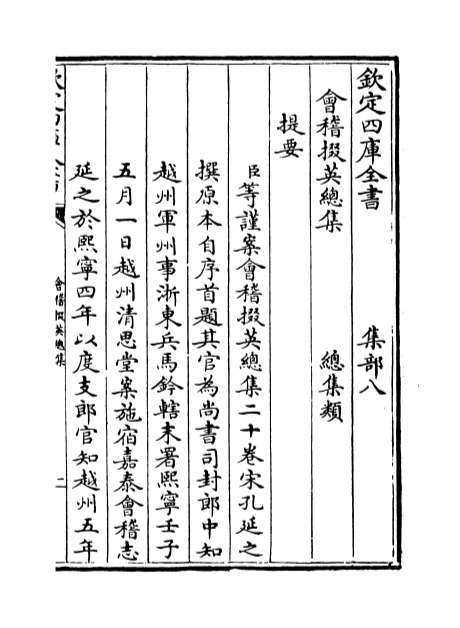 欽定四庫全書 集部八
會稽掇英總集 總集類
提要
臣等謹案會稽掇英總集二十卷宋孔延之
撰原本自序首題其官為尚書司封郎中知
越州軍州事浙東兵馬鈐轄末署熙寧壬子
五月一日越州清思堂案施宿嘉泰會稽志
延之於熙寧四年以度支郎官知越州五年
會稽掇英總集
二